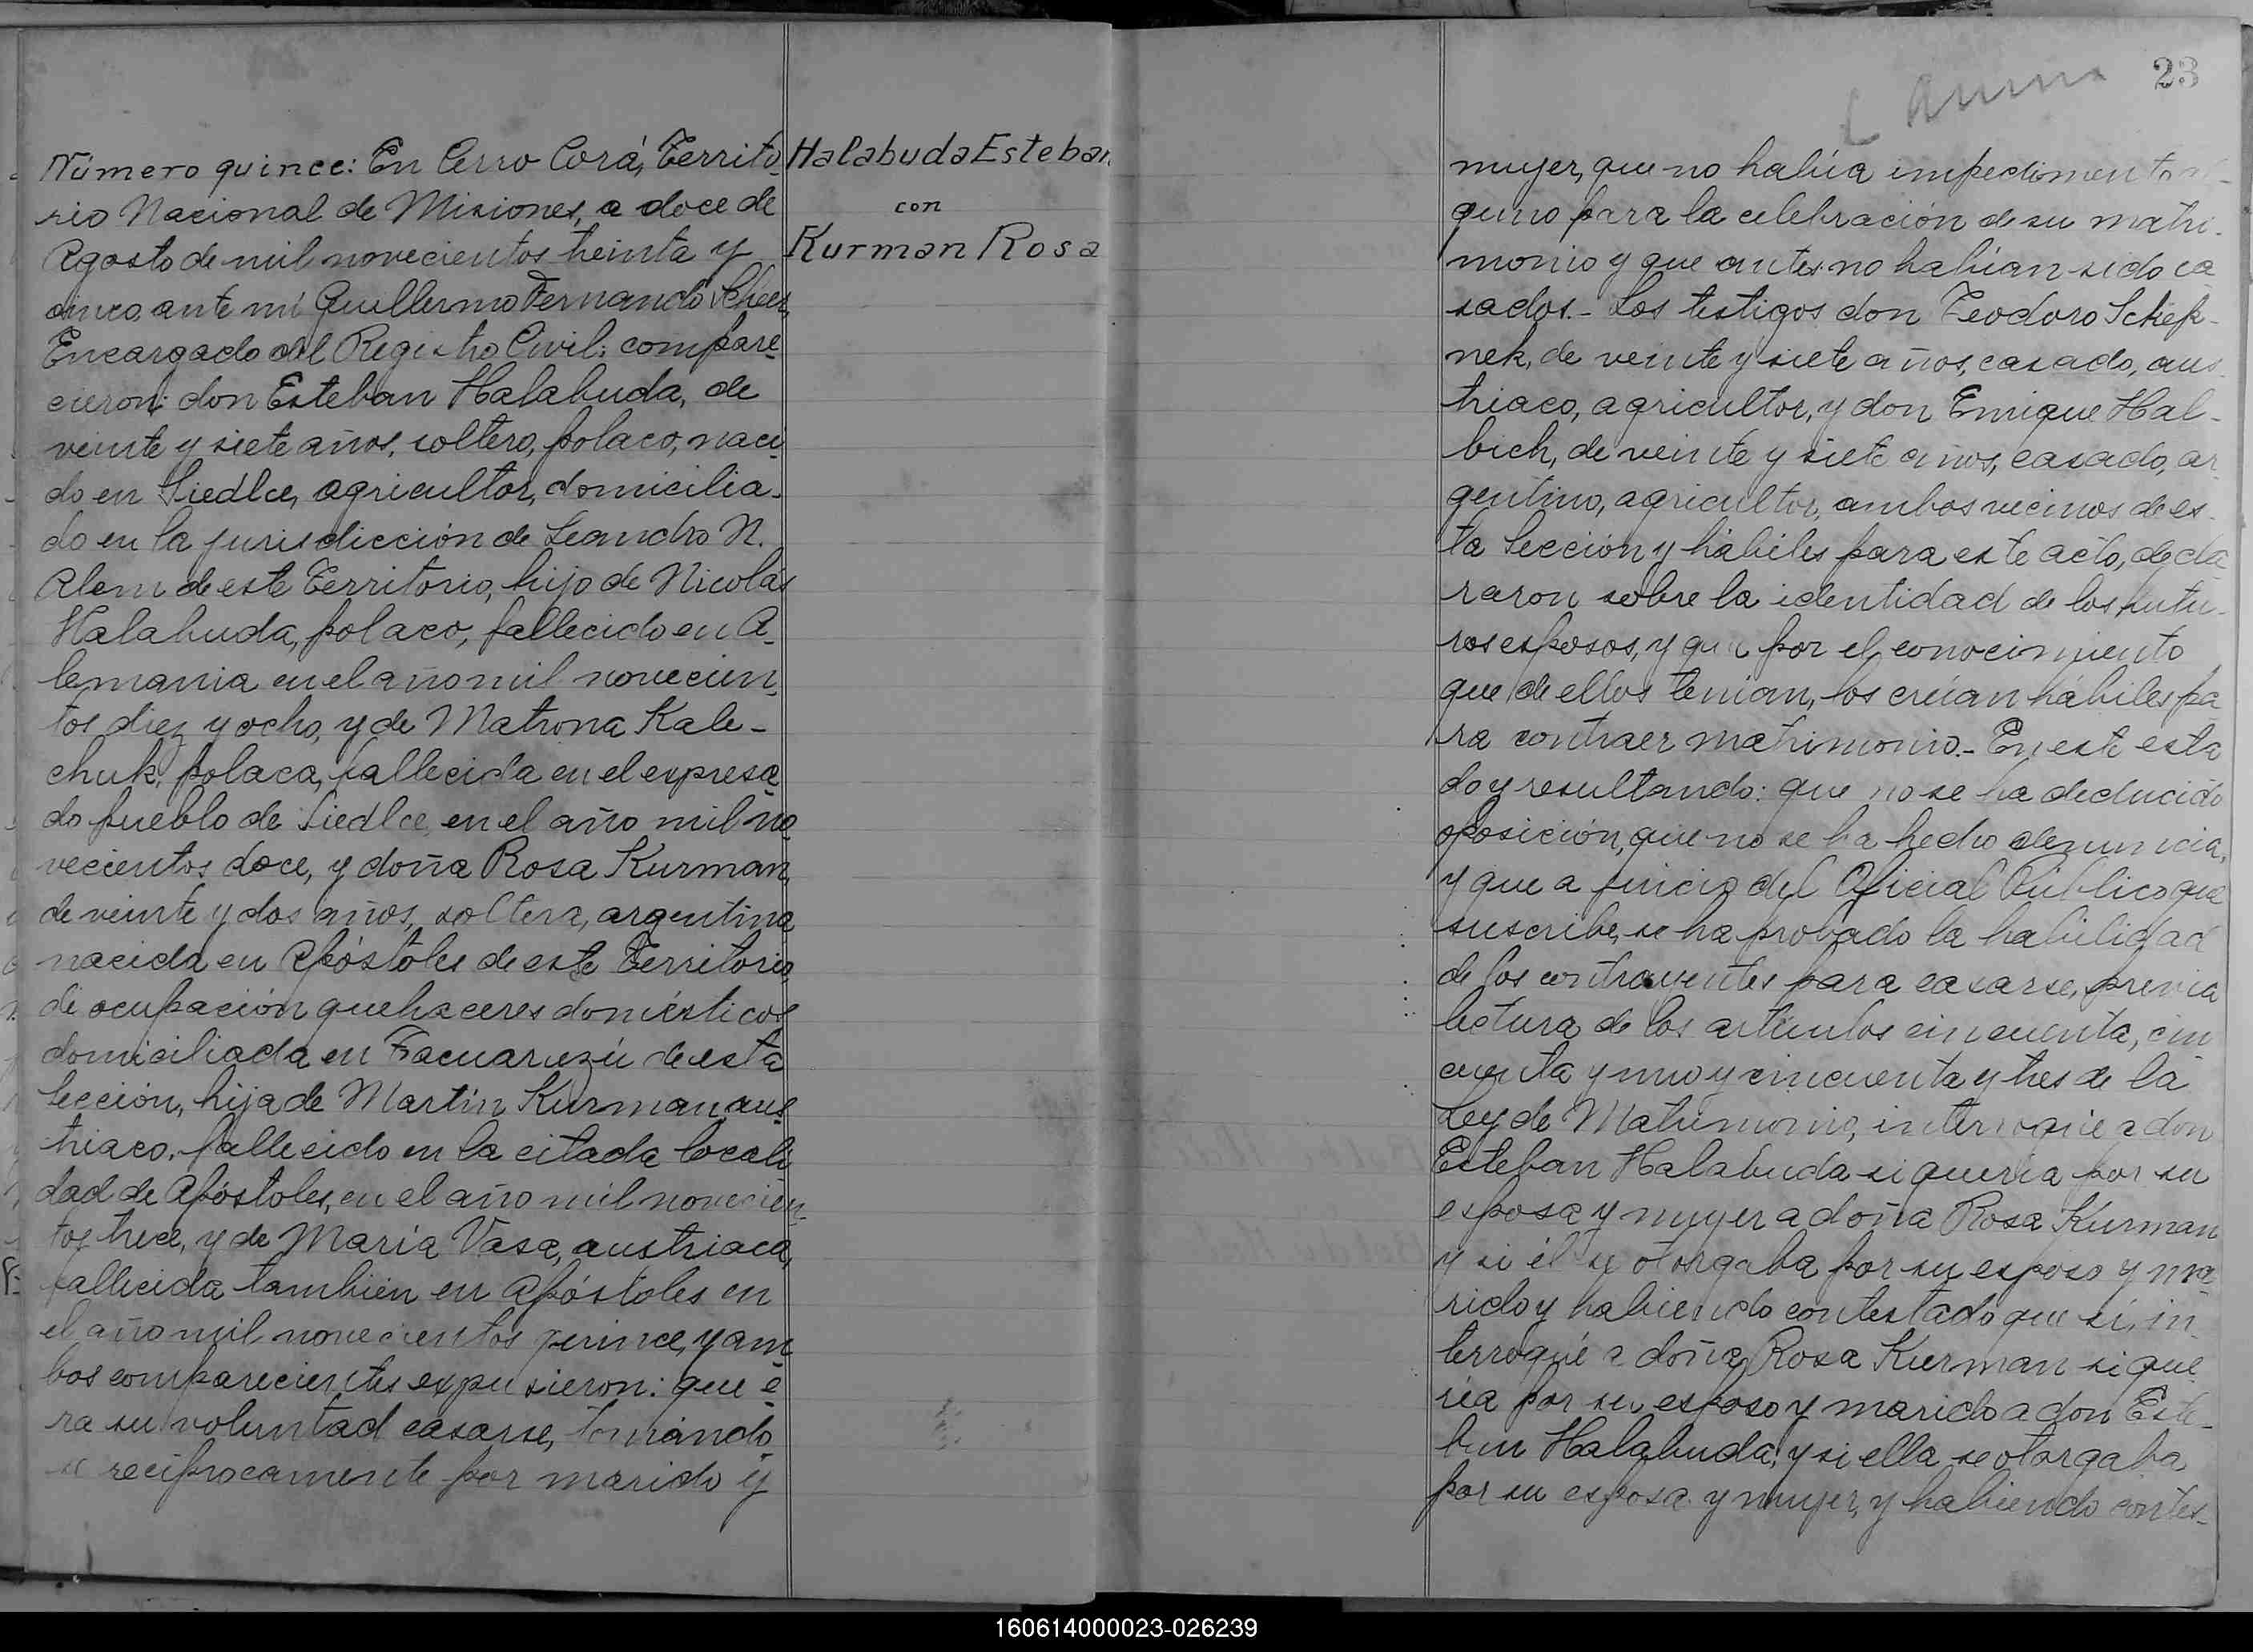 Número quince: En Cerro Corá, Territo-
rio Nacional de Misiones, a doce de
Agosto de mil novecientos treinta y
cinco, ante mí Guillermo Fernando
Encargado del Registro Civil: compare-
cieron: don Esteban Halabuda, de
veinte y siete años, soltero, polaco, naci-
do en Siedlce, agricultor, domicilia-
do en la jurisdicción de Leandro N.
Alem de este Territorio, hijo de Nicolás
Halabuda, polaco, fallecido en A-
lemania en el año mil novecien-
tos diez y ocho, y de Matrona Kale-
chuk, polaca, fallecida en el expresa-
do pueblo de Siedlce, en el año mil no-
vecientos doce, y doña Rosa Kurman,
de veinte y dos años, soltera, argentina,
nacida en Apóstoles de este Territorio,
de ocupación quehaceres domésticos,
domiciliada en Tacuaruzú de esta
Sección, hija de Martín Kurman, aus-
triaco, fallecido en la citada locali-
dad de Apóstoles, en el año mil novecien-
tos trece, y de María Vasa, austriaca,
fallecida también en Apóstoles en
el año mil novecientos quince, y am-
bos comparecientes expusieron: que e-
ra su voluntad casarse, tomándo-
se recíprocamente por marido y
Halabuda Esteban
con
Kurman Rosa
23
mujer, que no había impedimento al-
guno para la celebración de su matri-
monio y que antes no habían sido ca-
sados.- Los testigos don Teodoro Schep-
nek, de veinte y siete años, casado, aus-
triaco, agricultor, y don Enrique Hal-
bich, de veinte y siete años, casado, ar-
gentino, agricultor, ambos vecinos de es-
ta Sección y hábiles para este acto, decla-
raron sobre la identidad de los futu-
ros esposos, y que por el conocimiento
que de ellos tenían, los creían hábiles pa-
ra contraer matrimonio.- En este esta-
do y resultando: que no se ha deducido
oposición, que no se ha hecho denuncia,
y que a juicio del Oficial Público que
suscribe, se ha probado la habilidad
de los contrayentes para casarse, previa
lectura de los artículos cincuenta, cin-
cuenta y uno y cincuenta y tres de la
Ley de Matrimonio, interrogué a don
Esteban Halabuda si quería por su
esposa y mujer a doña Rosa Kurman
y si él se otorgaba por su esposo y ma-
rido y habiendo contestado que sí, in-
terrogué a doña Rosa Kurman si que-
ría por su esposo y marido a don Este-
ban Halabuda, y si ella se otorgaba
por su esposa y mujer, y habiendo contes-
160614000023-026239